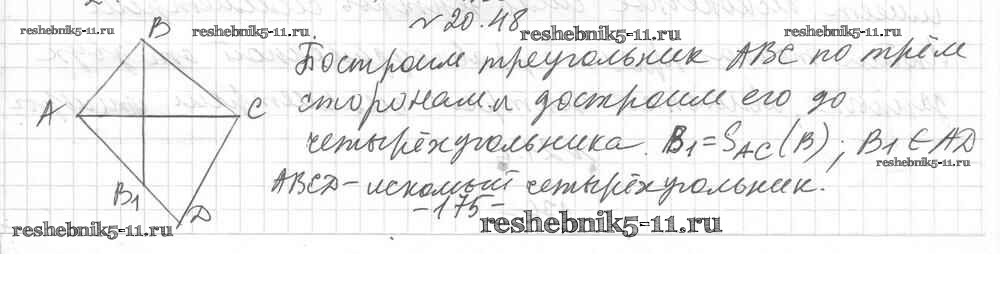 № 20.48
reshebnik5-11.ru reshebnik5-11.ru reshebnik5-11.ru reshebnik5-11.ru
B
Построим треугольник ABC по трём
A C сторонам и достроим его до
четырёхугольника. B₁=S_AC(B); B₁∈AD
reshebnik5-11.ru
B₁ ABCD-искомый четырёхугольник.
D -175-
reshebnik5-11.ru reshebnik5-11.ru